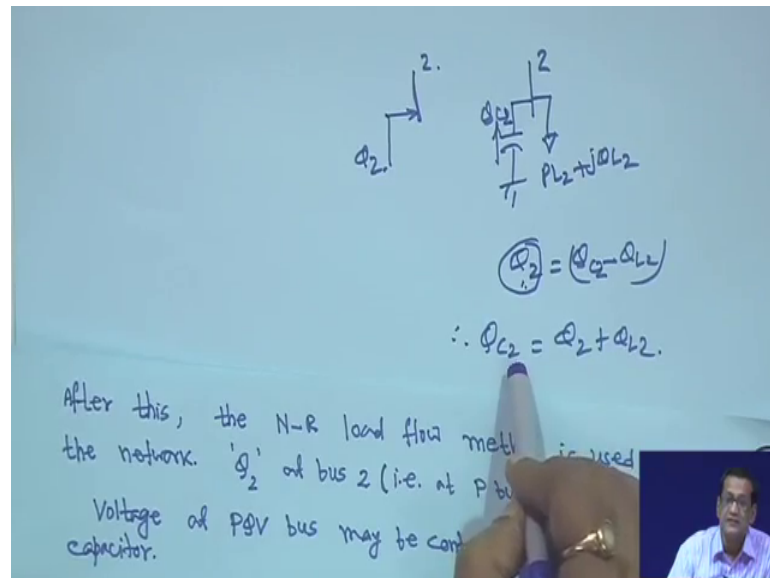 2.
2
Q2.
QC2
PL2+jQL2
Q2 = (QC2-QL2)
∴ QC2 = Q2 + QL2.
After this, the N-R load flow is used
the network. 'Q2' at bus 2 (i.e. at P
Voltage at PQV bus may be
capacitor.